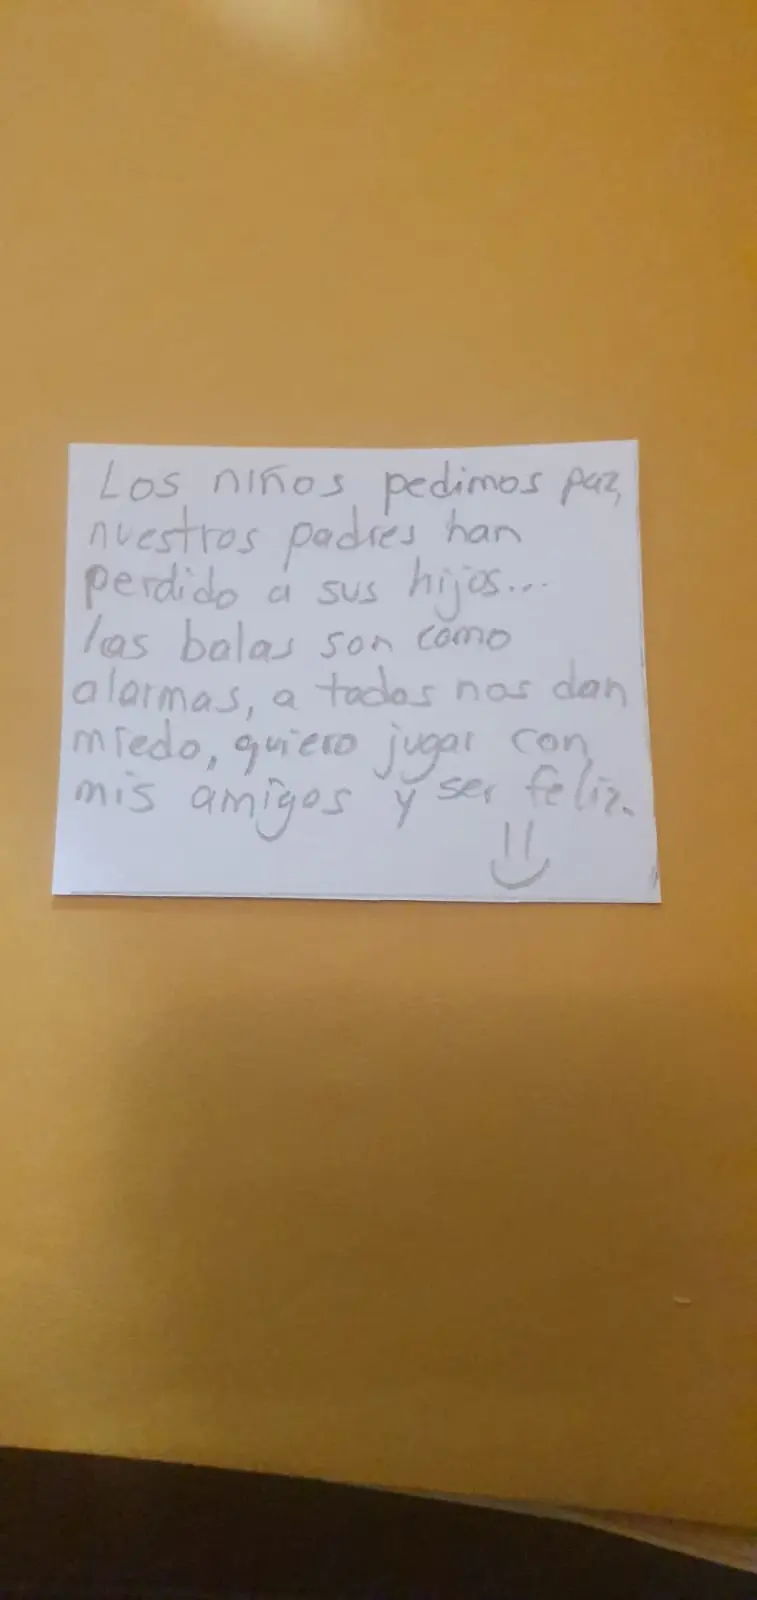 Los niños pedimos paz,
nuestros padres han
perdido a sus hijos...
las balas son como
alarmas, a todos nos dan
miedo, quiero jugar con
mis amigos y ser feliz.